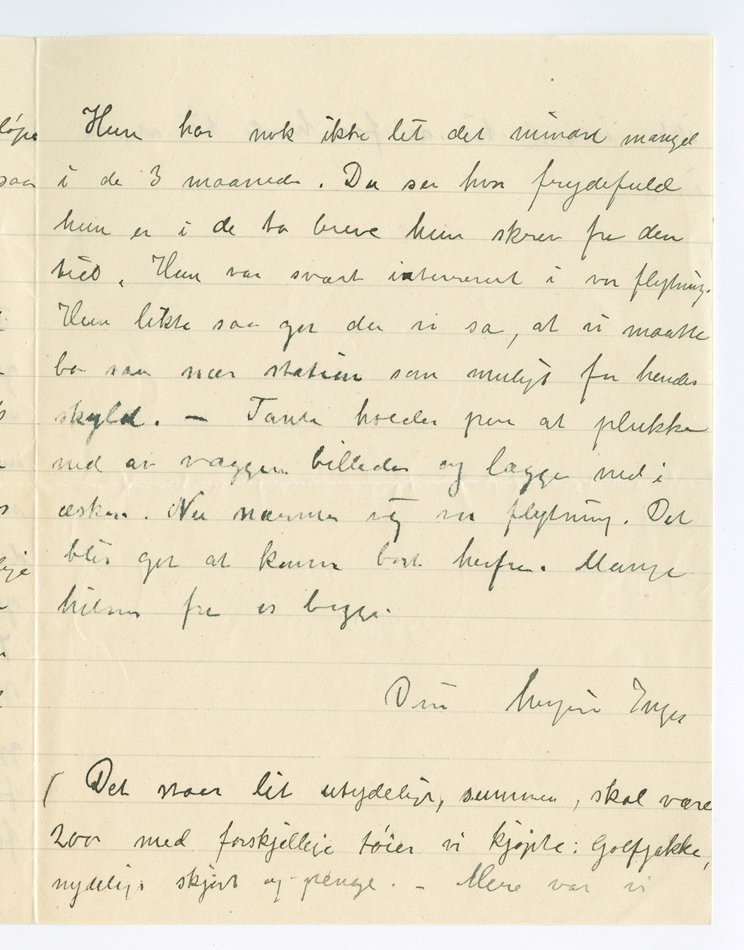 Hun har nok ikke let det mindste mangel
i de 3 maaneder. Du ser hvor frydefuld
hun er i de to breve hun skrev fra den
tid. Hun var svært interesert i vor flytning.
Hun likte saa got der vi sa, at vi maatte
bo saa nær station som muligt for hendes
skyld. — Tante holder paa at plukke
ned av væggen billeder og lægge ned i
æsken. Nu nærmer sig vor flytning. Det
blir got at komme bort herfra. Mange
hilsner fra os begge.
Din Inger
( Det staar lit utydeligt, summen, skal være
200 med forskjellige tøier vi kjøpte: Golfjakke,
nydelig skjørt og penge. — Mere var vi
løpe
saa